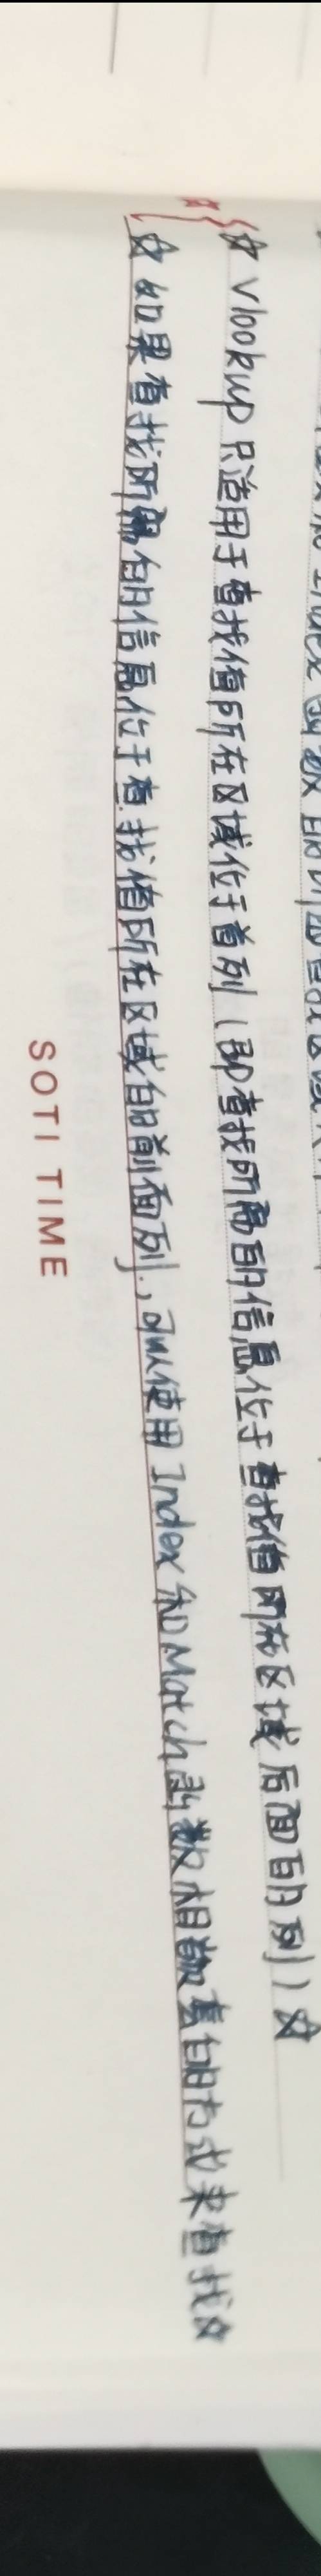 ☆ Vlookup 只适用于查找值所在区域位于首列(即查找所需的信息位于查找值所在区域后面的列)☆
☆ 如果查找所需的信息位于查找值所在区域的前面列，可以使用 Index 和 Match 函数相嵌套的方式来查找☆
SOTI TIME